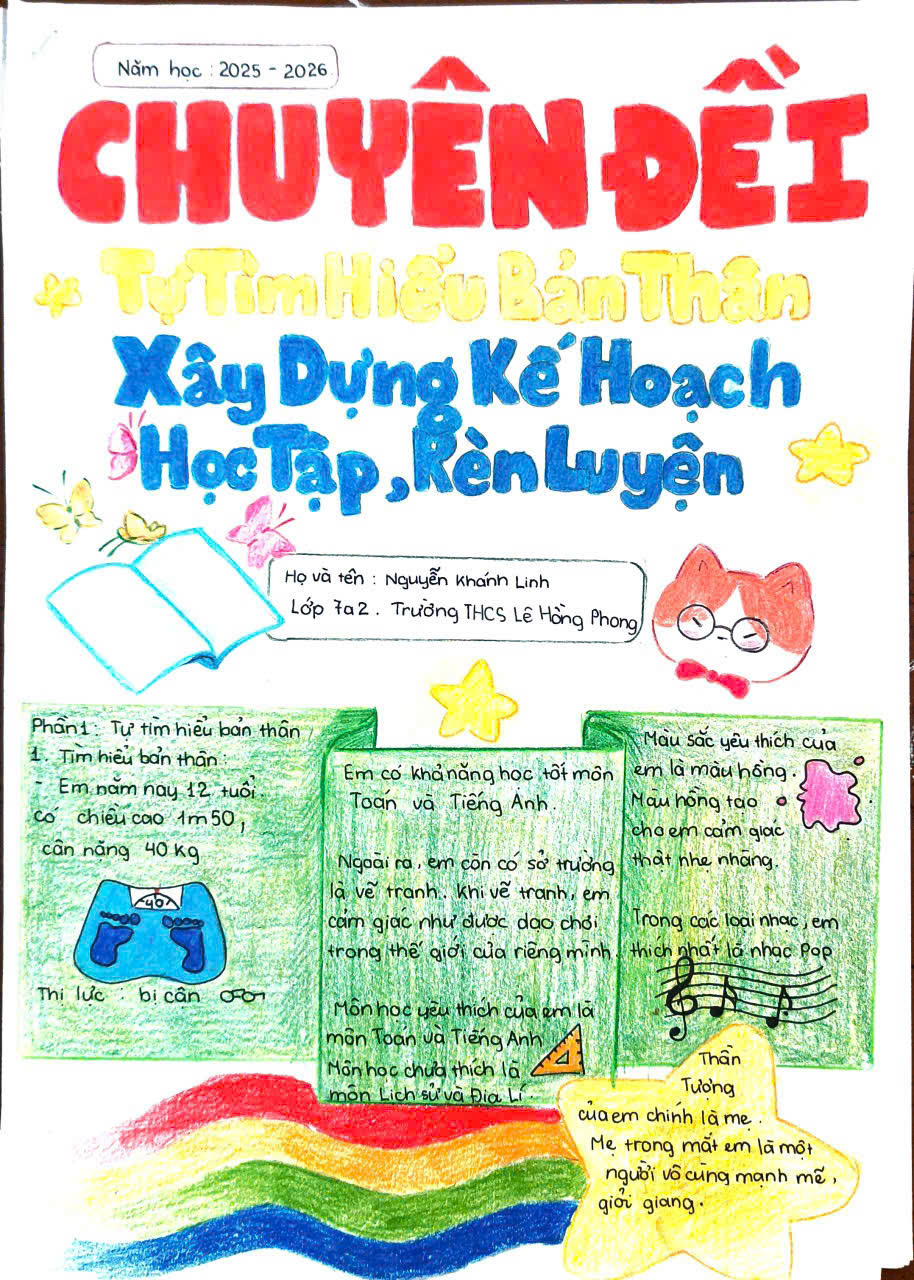 Năm học : 2025 - 2026
CHUYÊN ĐỀI
Tự Tìm Hiểu Bản Thân
Xây Dựng Kế Hoạch
Học Tập, Rèn Luyện
Họ và tên : Nguyễn Khánh Linh
Lớp 7a2. Trường THCS Lê Hồng Phong
Phần 1: Tự tìm hiểu bản thân
1. Tìm hiểu bản thân:
- Em năm nay 12 tuổi.
có chiều cao 1m50,
cân nặng 40 kg
40
Thị lực : bị cận
Em có khả năng học tốt môn
Toán và Tiếng Anh.
Ngoài ra, em còn có sở trường
là vẽ tranh. Khi vẽ tranh, em
cảm giác như được dạo chơi
trong thế giới của riêng mình.
Môn học yêu thích của em là
môn Toán và Tiếng Anh
Môn học chưa thích là
môn Lịch sử và Địa Lí.
Màu sắc yêu thích của
em là màu hồng.
Màu hồng tạo
cho em cảm giác
thật nhẹ nhàng.
Trong các loại nhạc, em
thích nhất là nhạc Pop
Thần
Tượng
của em chính là mẹ.
Mẹ trong mắt em là một
người vô cùng mạnh mẽ,
giỏi giang.